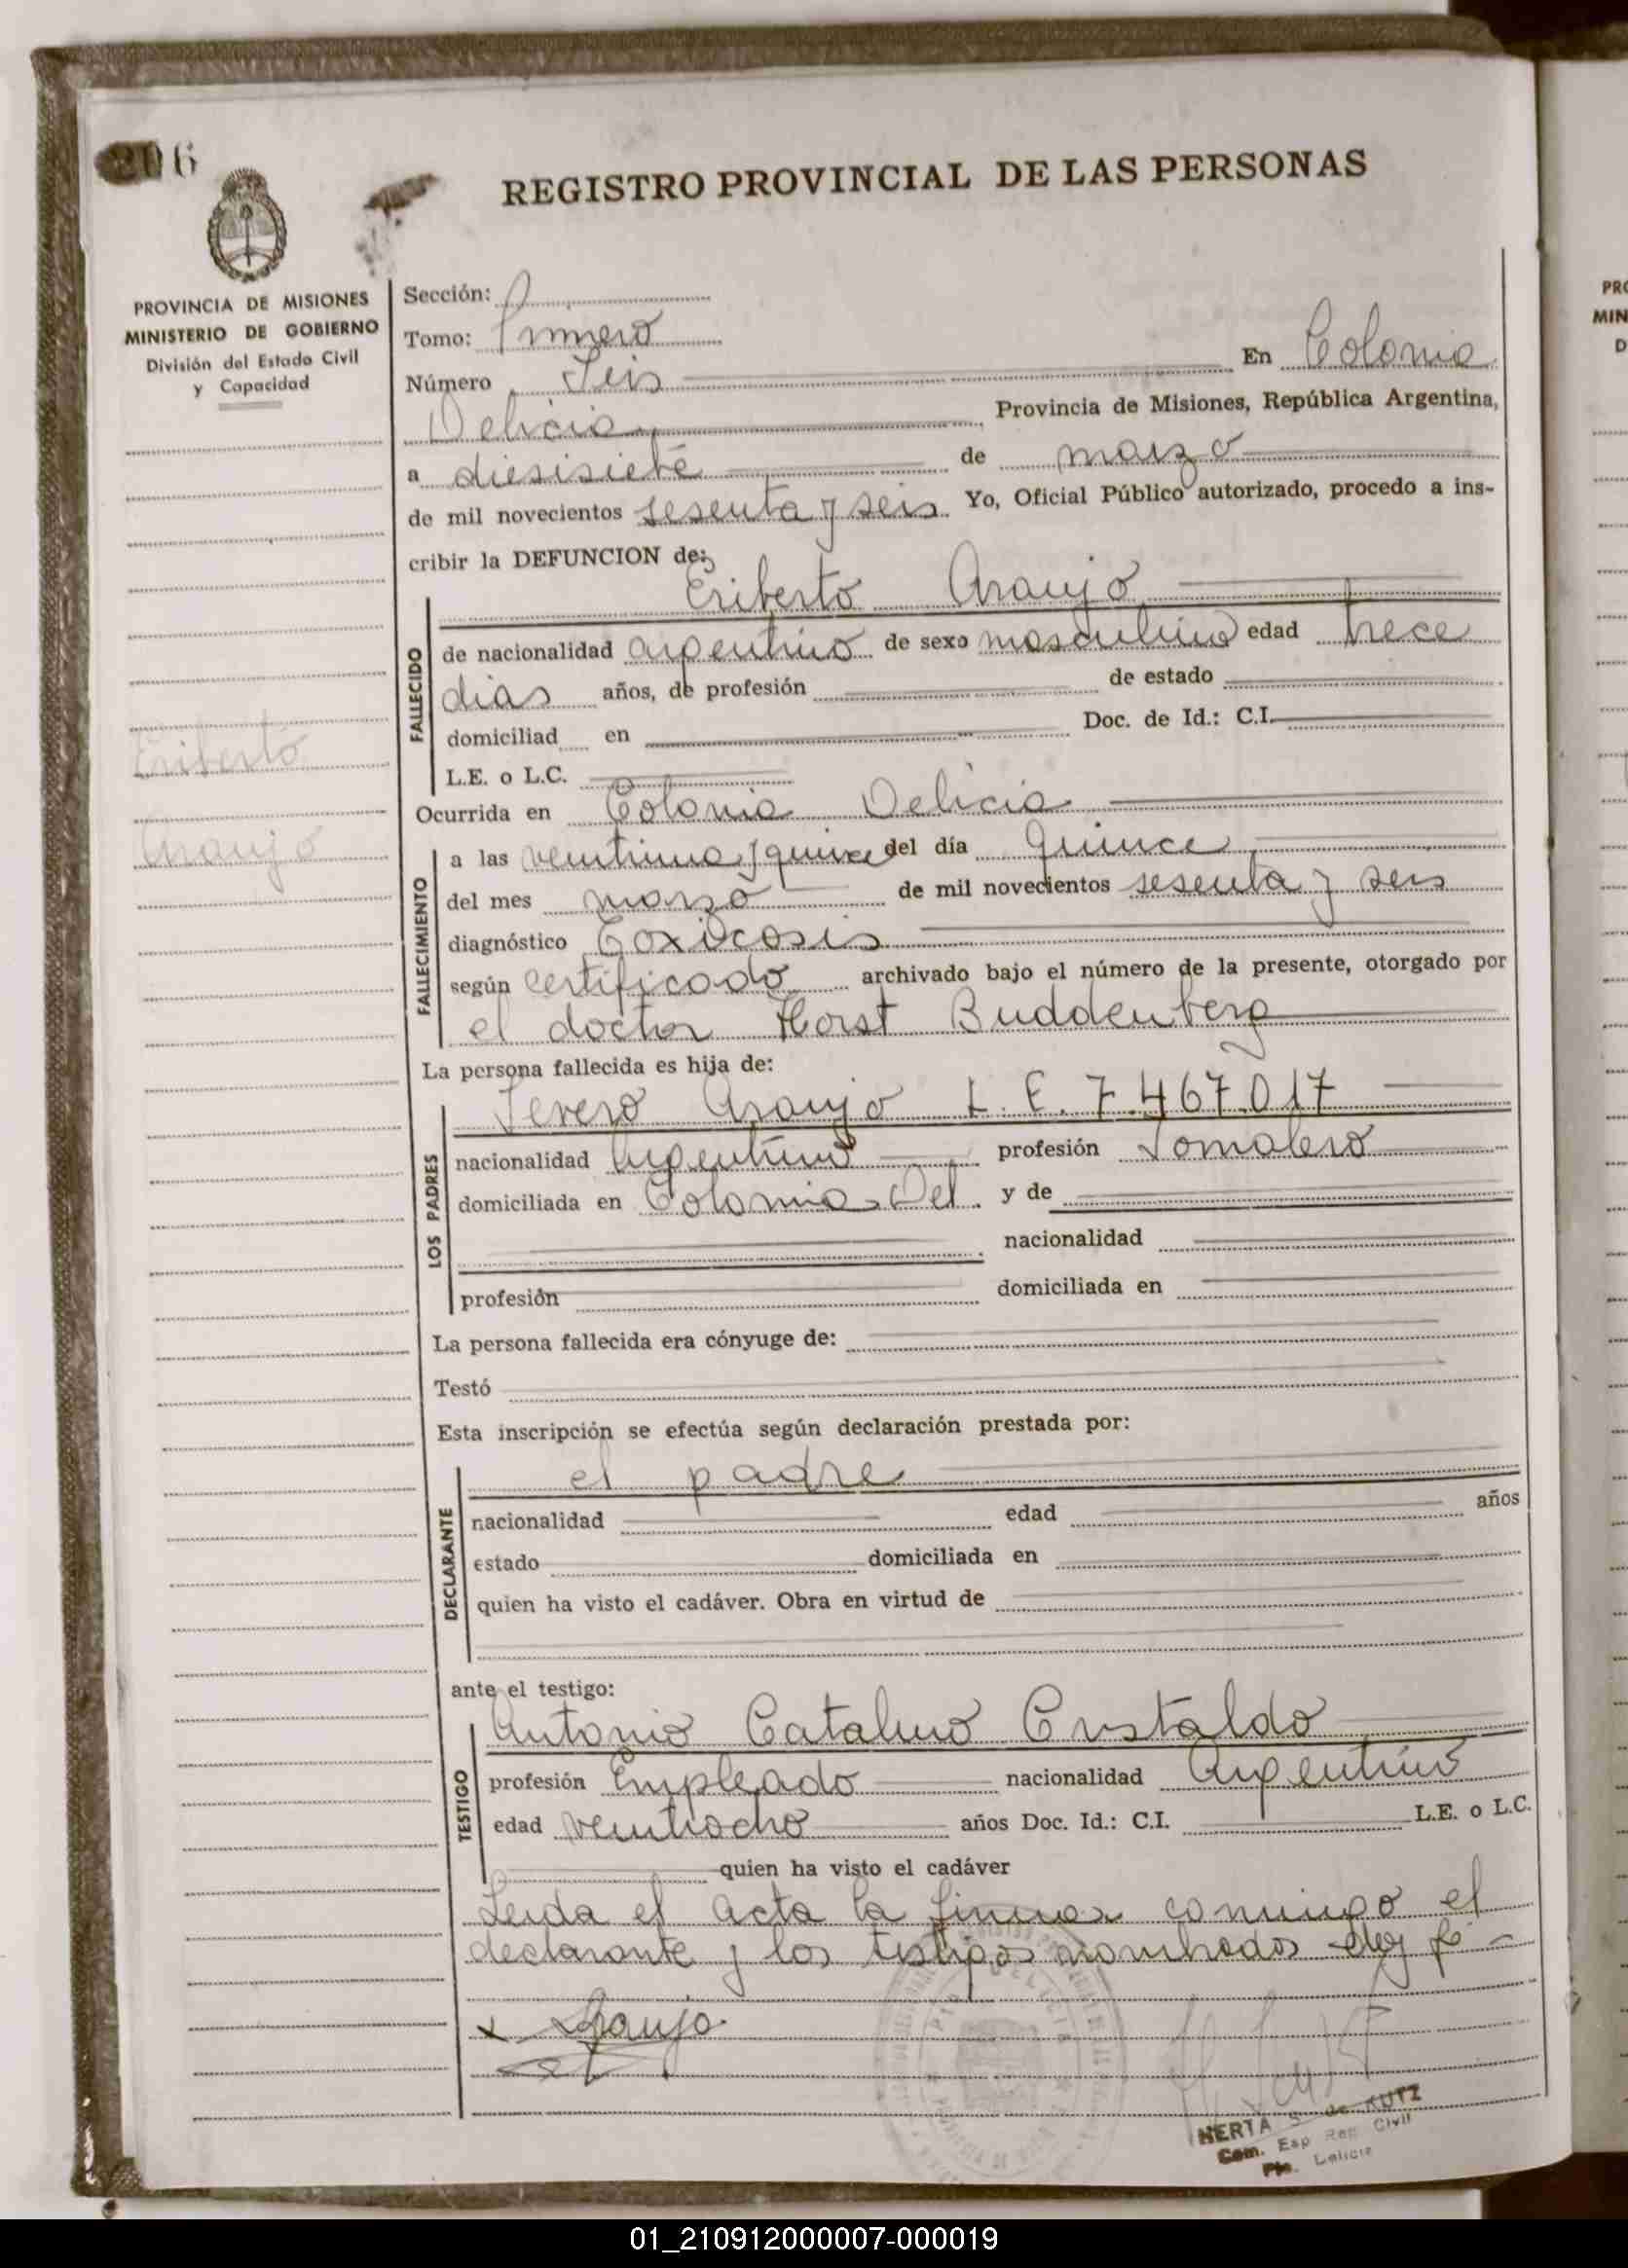 206
REGISTRO PROVINCIAL DE LAS PERSONAS
PROVINCIA DE MISIONES
MINISTERIO DE GOBIERNO
División del Estado Civil
y Capacidad
Sección:
Tomo: Primero
Número Seis En Colonia
Delicia Provincia de Misiones, República Argentina,
a diesisiete de marzo
de mil novecientos sesenta y seis Yo, Oficial Público autorizado, procedo a ins-
cribir la DEFUNCION de:
Eriberto Araujo
FALLECIDO
de nacionalidad argentino de sexo masculino edad trece
dias años, de profesión de estado
domiciliad en Doc. de Id.: C.I.
L.E. o L.C.
Eriberto
Araujo
Ocurrida en Colonia Delicia
FALLECIMIENTO
a las veintiuna y quince del día quince
del mes marzo de mil novecientos sesenta y seis
diagnóstico Toxicosis
según certificado archivado bajo el número de la presente, otorgado por
el doctor Horst Buddenberg
La persona fallecida es hija de:
LOS PADRES
Severo Araujo L.E. 7.467.017
nacionalidad Argentino profesión Jornalero
domiciliada en Colonia Del. y de
nacionalidad
profesión domiciliada en
La persona fallecida era cónyuge de:
Testó
Esta inscripción se efectúa según declaración prestada por:
DECLARANTE
el padre
nacionalidad edad años
estado domiciliada en
quien ha visto el cadáver. Obra en virtud de
ante el testigo:
TESTIGO
Antonio Catalino Cristaldo
profesión Empleado nacionalidad Argentino
edad veintiocho años Doc. Id.: C.I. L.E. o L.C.
quien ha visto el cadáver
Leida el acta la firman conmigo el
declarante y los testigos nombrados doy fe
x Araujo
HERTA S. de KUTZ
Com. Esp Reg Civil
Pto. Delicia
PRO
MIN
D
01_210912000007-000019